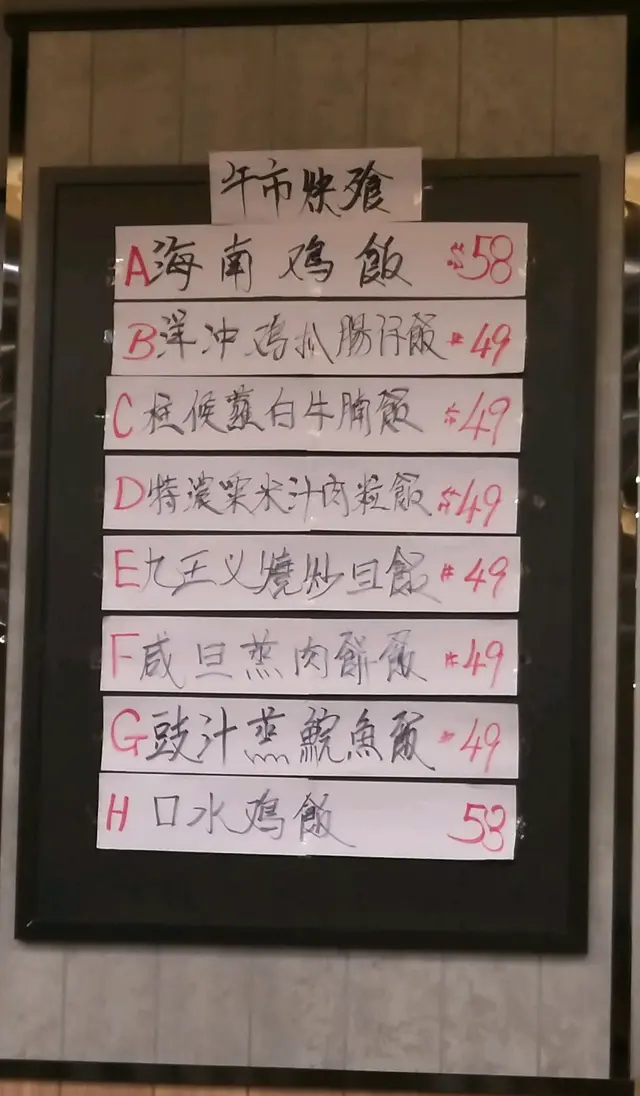 午市快飱
A海南鸡飯 $58
B洋冲鸡扒腸仔飯 $49
C柱候蘿白牛腩飯 $49
D特濃粟米汁肉粒飯 $49
E九王乂燒炒旦飯 $49
F咸旦蒸肉餅飯 $49
G豉汁蒸鯇魚飯 $49
H口水鸡飯 58